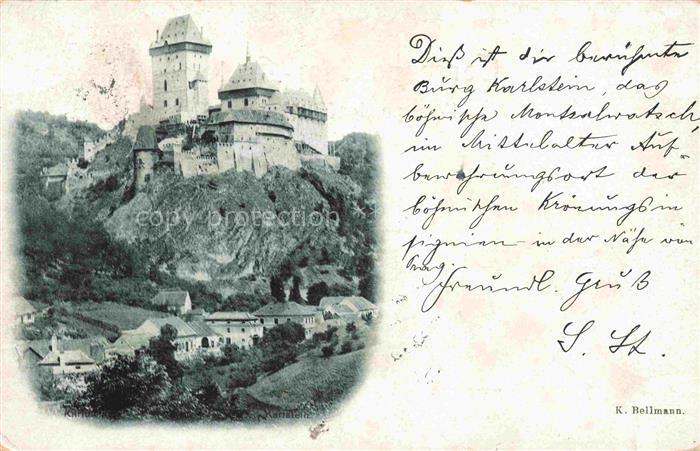 Dieß ist die berühmte
Burg Karlstein, das
böhmische Montsalvatsch
im Mittelalter Auf-
bewahrungsort der
böhmischen Krönungsin
signien – in der Nähe von
Prag.
Freundl. Gruß
S. St.
K. Bellmann.
copy protection
Karlstein.